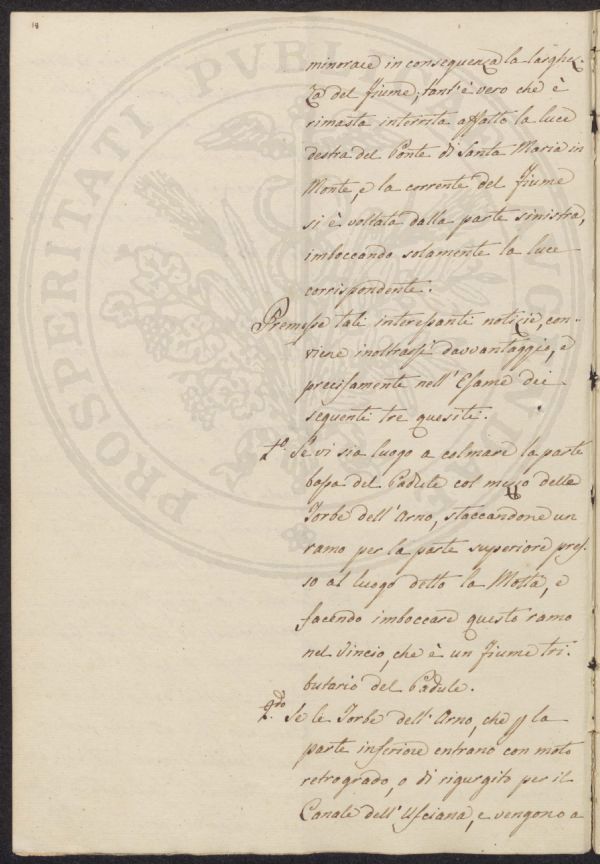 18
minorare in conseguenza la larghez-
za del fiume; tant'è vero che è
rimasta interrita affatto la luce
destra del Ponte di Santa Maria in
Monte, e la corrente del fiume
si è voltata dalla parte sinistra,
imboccando solamente la luce
corrispondente.
Premesse tali interessanti notizie, con-
viene inoltrarsi davvantaggio, e
precisamente nell'Esame dei
seguenti tre quesiti.
1.º Se vi sia luogo a colmare la parte
bassa del Padule col mezzo delle
Torbe dell'Arno, staccandone un
ramo per la parte superiore pres-
so al luogo detto la Motta, e
facendo imboccare questo ramo
nel Vincio, che è un fiume tri-
butario del Padule.
2.do Se le Torbe dell'Arno, che p la
parte inferiore entrano con moto
retrogrado, o di rigurgito per il
Canale dell'Usciana, e vengono a
PROSPERITATI PVBLICAE AVGENDAE